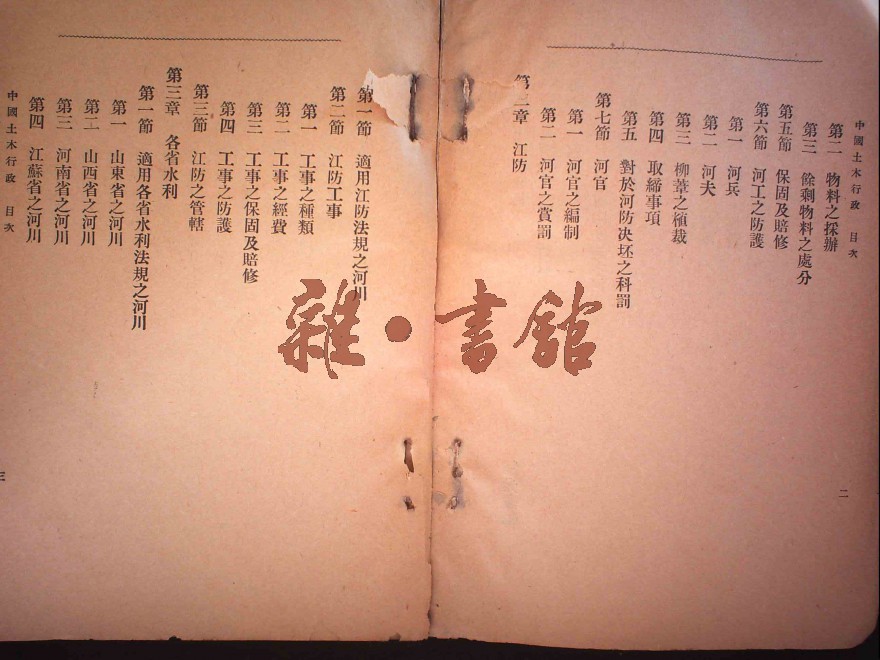 中國土木行政 目次
第二 物料之採辦
第三 餘剩物料之處分
第五節 保固及賠修
第六節 河工之防護
第一 河兵
第二 河夫
第三 柳葦之植栽
第四 取締事項
第五 對於河防决坯之科罰
第七節 河官
第一 河官之編制
第二 河官之賞罰
第二章 江防
二
第一節 適用江防法規之河川
第二節 江防工事
第一 工事之種類
第二 工事之經費
第三 工事之保固及賠修
第四 工事之防護
第三節 江防之管轄
第三章 各省水利
第一節 適用各省水利法規之河川
第一 山東省之河川
第二 山西省之河川
第三 河南省之河川
第四 江蘇省之河川
中國土木行政 目次
三
雜·書館